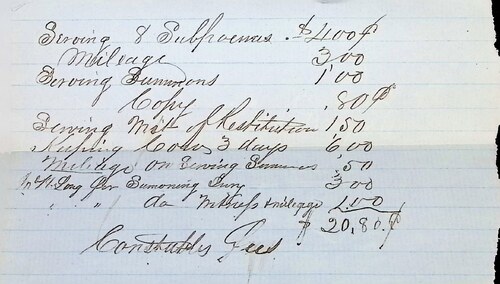 Serving 8 Subpoenas $4.00¢
Mileage 3.00
Serving Summons 1.00
Copy .80¢
Serving Writ of Restitution 1.50
Keeping Cows 3 days 6.00
Mileage on Serving Summons .50
W. H. Long for Sumoning Jury 3.00
" " do Witness & mileage 1.00
$20,80.¢
Constables Fees.